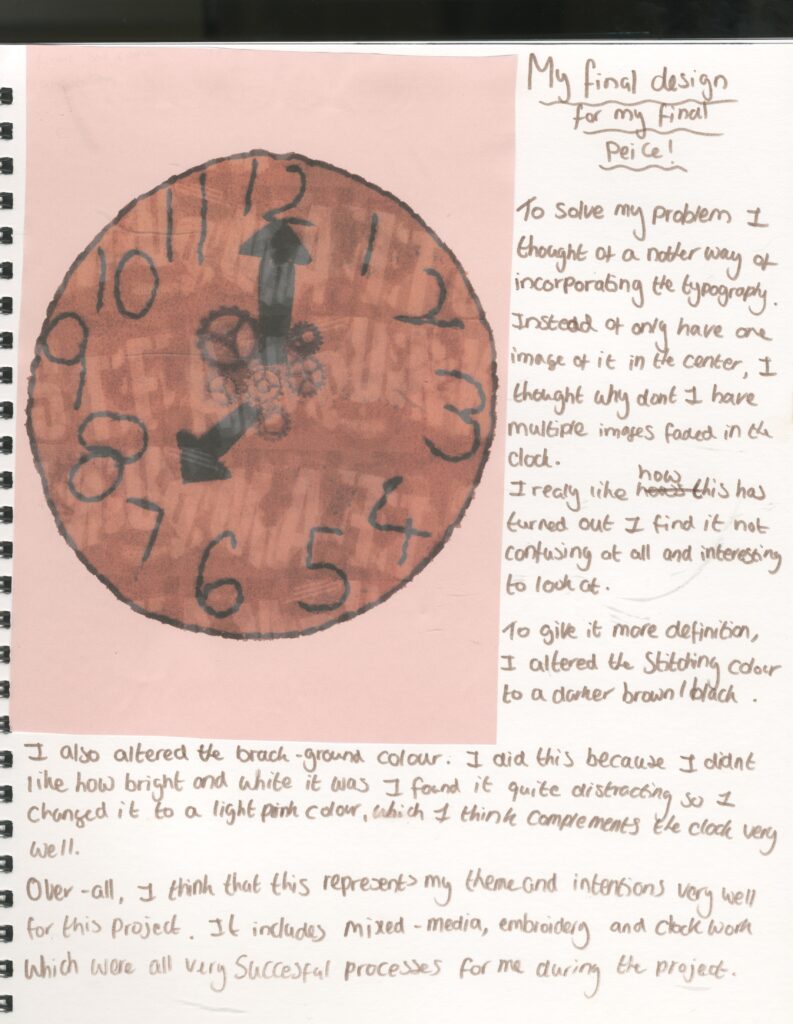 My final design
for my final
Peice!
12
11
1
10
2
9
3
8
4
7
5
6
To solve my problem I
thought of a nother way of
incorporating the typography.
Instead of only have one
image of it in the center, I
thought why dont I have
multiple images faded in the
clock.
how
I realy like this has
turned out I find it not
confusing at all and interesting
to look at.
To give it more definition,
I altered the Stitching colour
to a darker brown/black.
I also altered the brach-ground colour. I did this because I didnt
like how bright and white it was I found it quite distracting so I
changed it to a light pink colour, which I think complements the clock very
well.
Over-all, I think that this represents my theme and intentions very well
for this project. It includes mixed-media, embroidery and clock work
which were all very Succesful processes for me during the project.